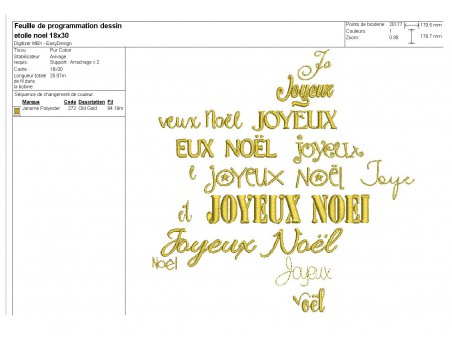 Feuille de programmation dessin
etoile noel 18x30
Digitizer MBX - EasyDesign
Points de broderie: 20177
Couleurs: 1
Zoom: 0.98
179.6 mm
179.7 mm
Tissu: Pur Coton
Stabilisateur requis: Arrachage Support : Arrachage x 2
Cadre: 18x30
Longueur totale de fil dans la bobine: 25.97m
Séquence de changement de couleur:
Marque Code Description Fil
Janome Polyester 272 Old Gold 94.18m
Jo
Joyeux
veux Noël JOYEUX
EUX NOËL joyeux
e joyeux NOËL Joye
et JOYEUX NOEl
Joyeux Noël
Noël
Joyeux
Noël